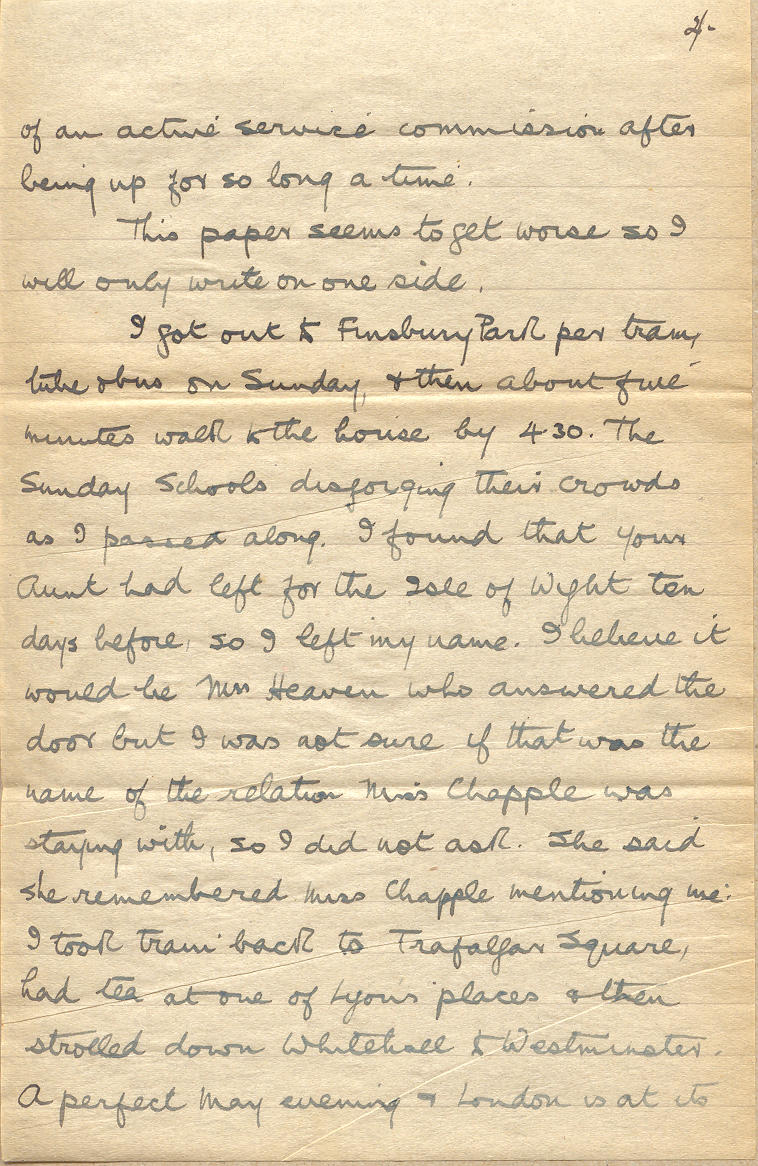 2/-
of an active service commission after
being up for so long a time.
This paper seems to get worse so I
will only write on one side.
I got out to Finsbury Park per tram,
tube & bus on Sunday, & then about five
minutes walk to the house by 4.30. The
Sunday Schools disgorging their crowds
as I passed along. I found that your
Aunt had left for the Isle of Wight ten
days before, so I left my name. I believe it
would be Mrs Heaven who answered the
door but I was not sure if that was the
name of the relation Miss Chapple was
staying with, so I did not ask. She said
she remembered Miss Chapple mentioning me.
I took tram back to Trafalgar Square,
had tea at one of Lyons' places & then
strolled down Whitehall to Westminster.
A perfect May evening & London is at its